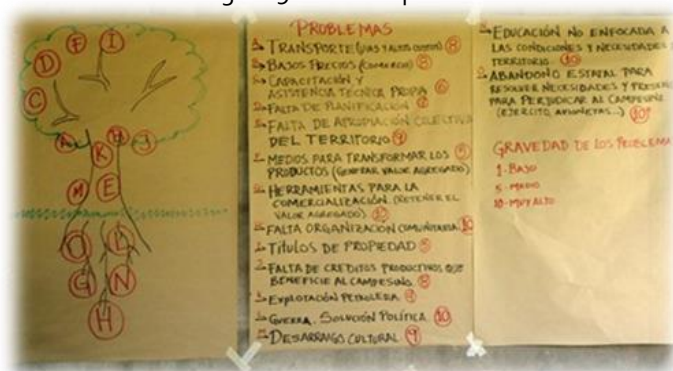 F I
D
C
A H J
K
M E
L
G N
H
PROBLEMAS
TRANSPORTE (VIAS Y ALTOS COSTOS) 8
BAJOS PRECIOS (COMERCIO) 8
CAPACITACIÓN Y
ASISTENCIA TÉCNICA PROPIA 6
FALTA DE PLANIFICACIÓN
FALTA DE APROPIACIÓN COLECTIVA
DEL TERRITORIO 9
MEDIOS PARA TRANSFORMAR LOS
PRODUCTOS (GENERAR VALOR AGREGADO)
HERRAMIENTAS PARA LA
COMERCIALIZACIÓN. (RETENER EL
VALOR AGREGADO)
FALTA ORGANIZACIÓN COMUNITARIA. 10
TÍTULOS DE PROPIEDAD
FALTA DE CREDITOS PRODUCTIVOS QUE
BENEFICIE AL CAMPESINO. 8
EXPLOTACIÓN PETROLERA
GUERRA. SOLUCIÓN POLÍTICA. 10
DESARRAIGO CULTURAL 9
EDUCACIÓN NO ENFOCADA A
LAS CONDICIONES Y NECESIDADES
TERRITORIO. 10
ABANDONO ESTATAL PARA
RESOLVER NECESIDADES Y
PARA PERJUDICAR AL CAMPESINO
(EJERCITO, ...) 10
GRAVEDAD DE LOS PROBLEMA
1- BAJO
5- MEDIO
10- MUY ALTO